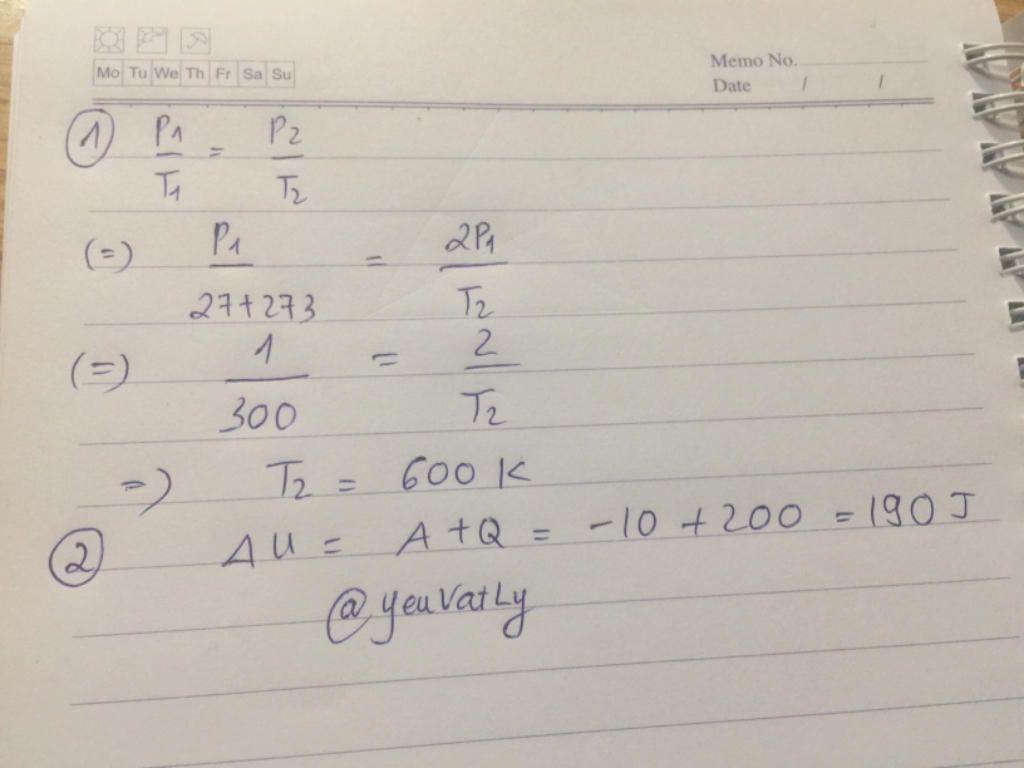 Mo Tu We Th Fr Sa Su
Memo No.
Date / /
① P1/T1 = P2/T2
(=) P1/27+273 = 2P1/T2
(=) 1/300 = 2/T2
=) T2 = 600 K
② ΔU = A+Q = -10 +200 = 190 J
@yeuVatLy